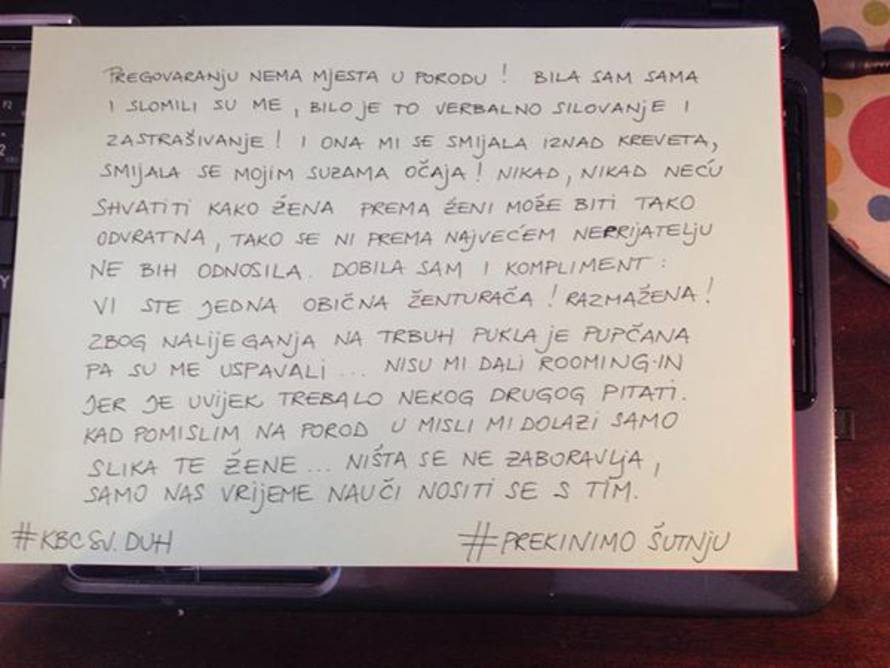 PREGOVARANJU NEMA MJESTA U PORODU! BILA SAM SAMA
I SLOMILI SU ME, BILO JE TO VERBALNO SILOVANJE I
ZASTRAŠIVANJE! I ONA MI SE SMIJALA IZNAD KREVETA,
SMIJALA SE MOJIM SUZAMA OČAJA! NIKAD, NIKAD NEĆU
SHVATITI KAKO ŽENA PREMA ŽENI MOŽE BITI TAKO
ODVRATNA, TAKO SE NI PREMA NAJVEĆEM NEPRIJATELJU
NE BIH ODNOSILA. DOBILA SAM I KOMPLIMENT:
VI STE JEDNA OBIČNA ŽENTURAČA! RAZMAŽENA!
ZBOG NALIJEGANJA NA TRBUH PUKLA JE PUPČANA
PA SU ME USPAVALI... NISU MI DALI ROOMING-IN
JER JE UVIJEK TREBALO NEKOG DRUGOG PITATI.
KAD POMISLIM NA POROD U MISLI MI DOLAZI SAMO
SLIKA TE ŽENE... NIŠTA SE NE ZABORAVLJA,
SAMO NAS VRIJEME NAUČI NOSITI SE S TIM.
#KBC SV. DUH #PREKINIMO ŠUTNJU